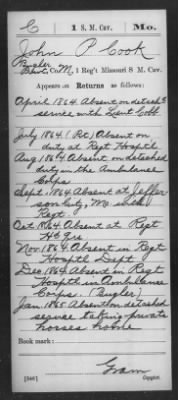 C 1 S. M. Cav. Mo.
John P Cook
Bugler
Pvt, Co. M, 1 Reg't Missouri S M. Cav.
Appears on Returns as follows:
April 1864. Absent on detach
service with Lieut Cobb
July 1864. (Rt) Absent on
duty at Regt Hosptl
Aug 1864 Absent on detached
duty in the Ambulance
Corps.
Sept. 1864 Absent at Jeffer
son City, Mo with
Regt
Oct 1864 Absent at Regt
Hd Qrs
Nov 1864. Absent in Regt
Hosptl Dept
Dec 1864. Absent in Regt
Hosptl in Ambulance
Corps. (Bugler)
Jan. 1865 Absent on detached
service taking private
horses home
Book mark:
Gram
(546) Copyist.